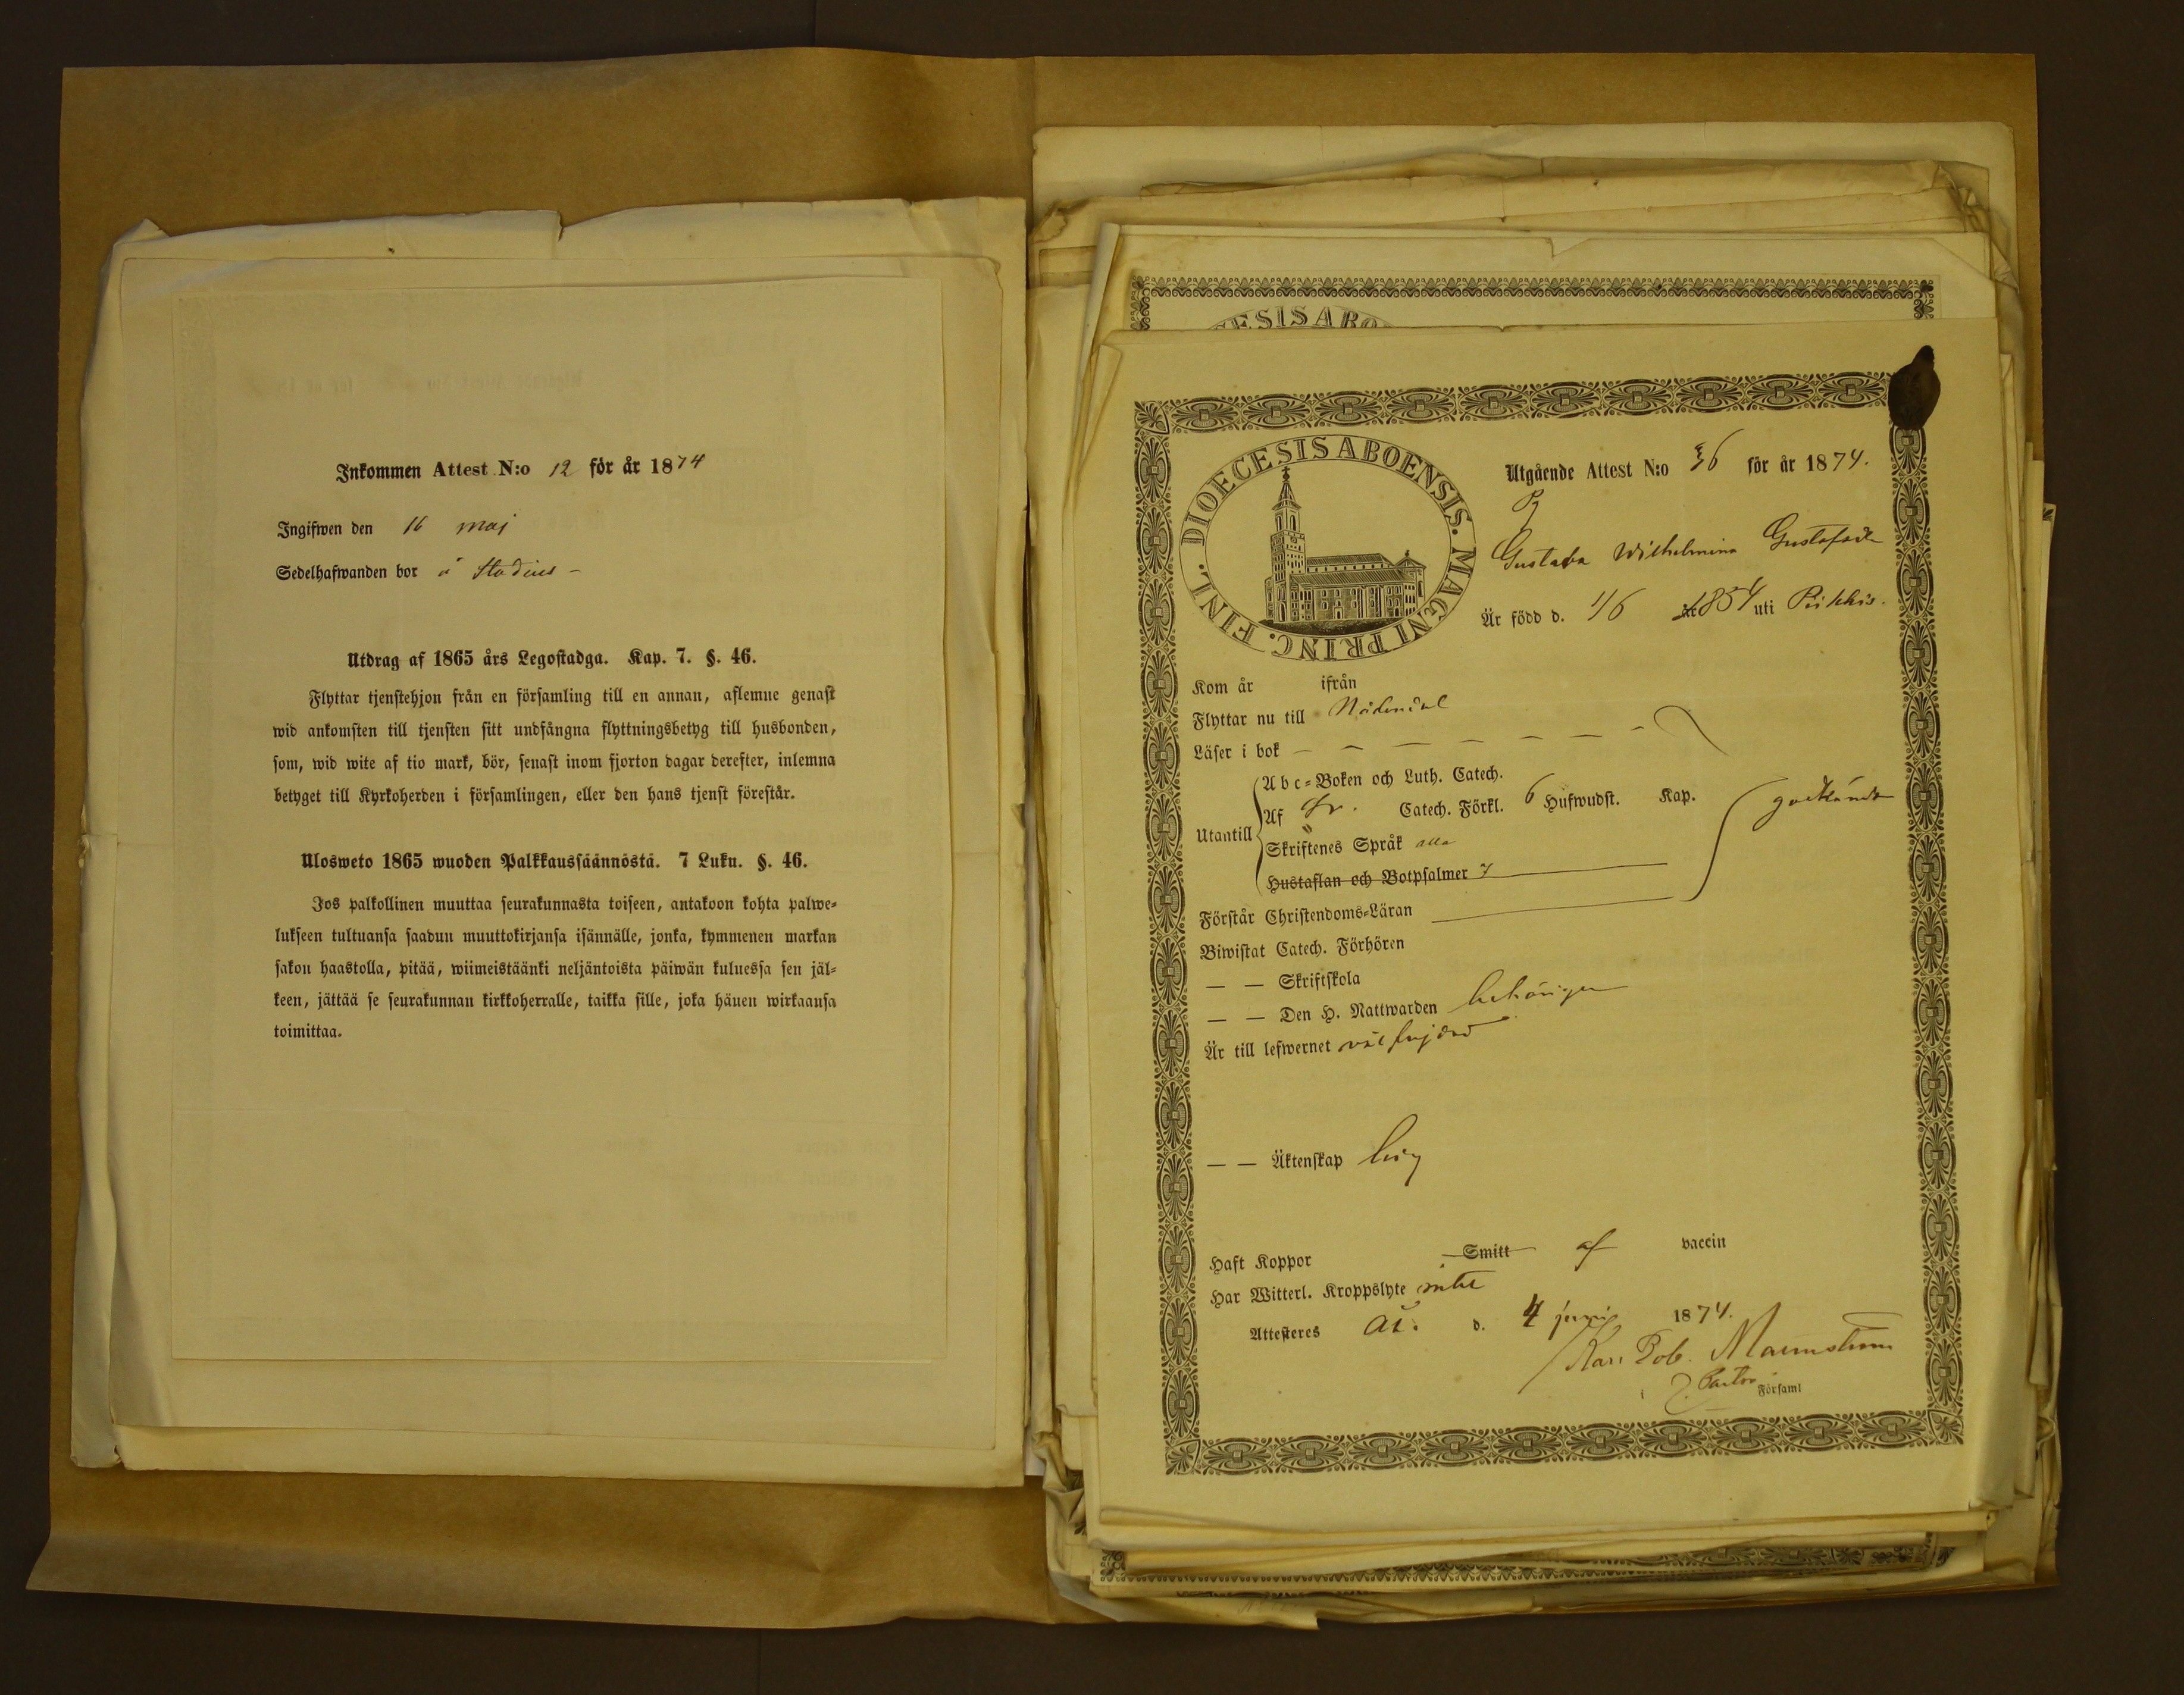 Inkommen Attest N:o 12 för år 1874
Ingifwen den 16 maj
Sedelhafwanden bor å Stadius –
Utdrag af 1865 års Legostadga. Kap. 7. §. 46.
Flyttar tjenstehjon från en församling till en annan, aflemne genast
wid ankomsten till tjensten sitt undfångna flyttningsbetyg till husbonden,
som, wid wite af tio mark, bör, senast inom fjorton dagar derefter, inlemna
betyget till Kyrkoherden i församlingen, eller den hans tjenst förestår.
Ulosweto 1865 wuoden Palkkaussäännöstä. 7 Luku. §. 46.
Jos palkollinen muuttaa seurakunnasta toiseen, antakoon kohta palwe-
lukseen tultuansa saadun muuttokirjansa isännälle, jonka, kymmenen markan
sakon haastolla, pitää, wiimeistäänki neljäntoista päiwän kuluessa sen jäl-
keen, jättää se seurakunnan kirkkoherralle, taikka sille, joka hänen wirkaansa
toimittaa.
DIOECESIS ABOENSIS. MAGNI PRINC. FINL.
Utgående Attest N:o 36 för år 1874.
Gustava Wilhelmina Gustafsdr
Är född d. 1/6 1854 uti Piikkis.
Kom år ifrån
Flyttar nu till Nådendal
Läser i bok – – – – – – –
Utantill
Abc-Boken och Luth. Catech.
Af Catech. Förkl. 6 Hufwudst. Kap.
godkändt
Skriftenes Språk alla
Hustaflan och Botpsalmer 7
Förstår Christendoms-Läran
Biwistat Catech. Förhören
— — Skriftskola
— — Den H. Nattwarden behörigen
Är till lefwernet välfrejdad
— — Äktenskap ledig
Haft Koppor Smitt af vaccin
Har Witterl. Kroppslyte intet
Attesteres d. 4 juni 1874.
Karl Rob. Malmström
Pastor
i Församl